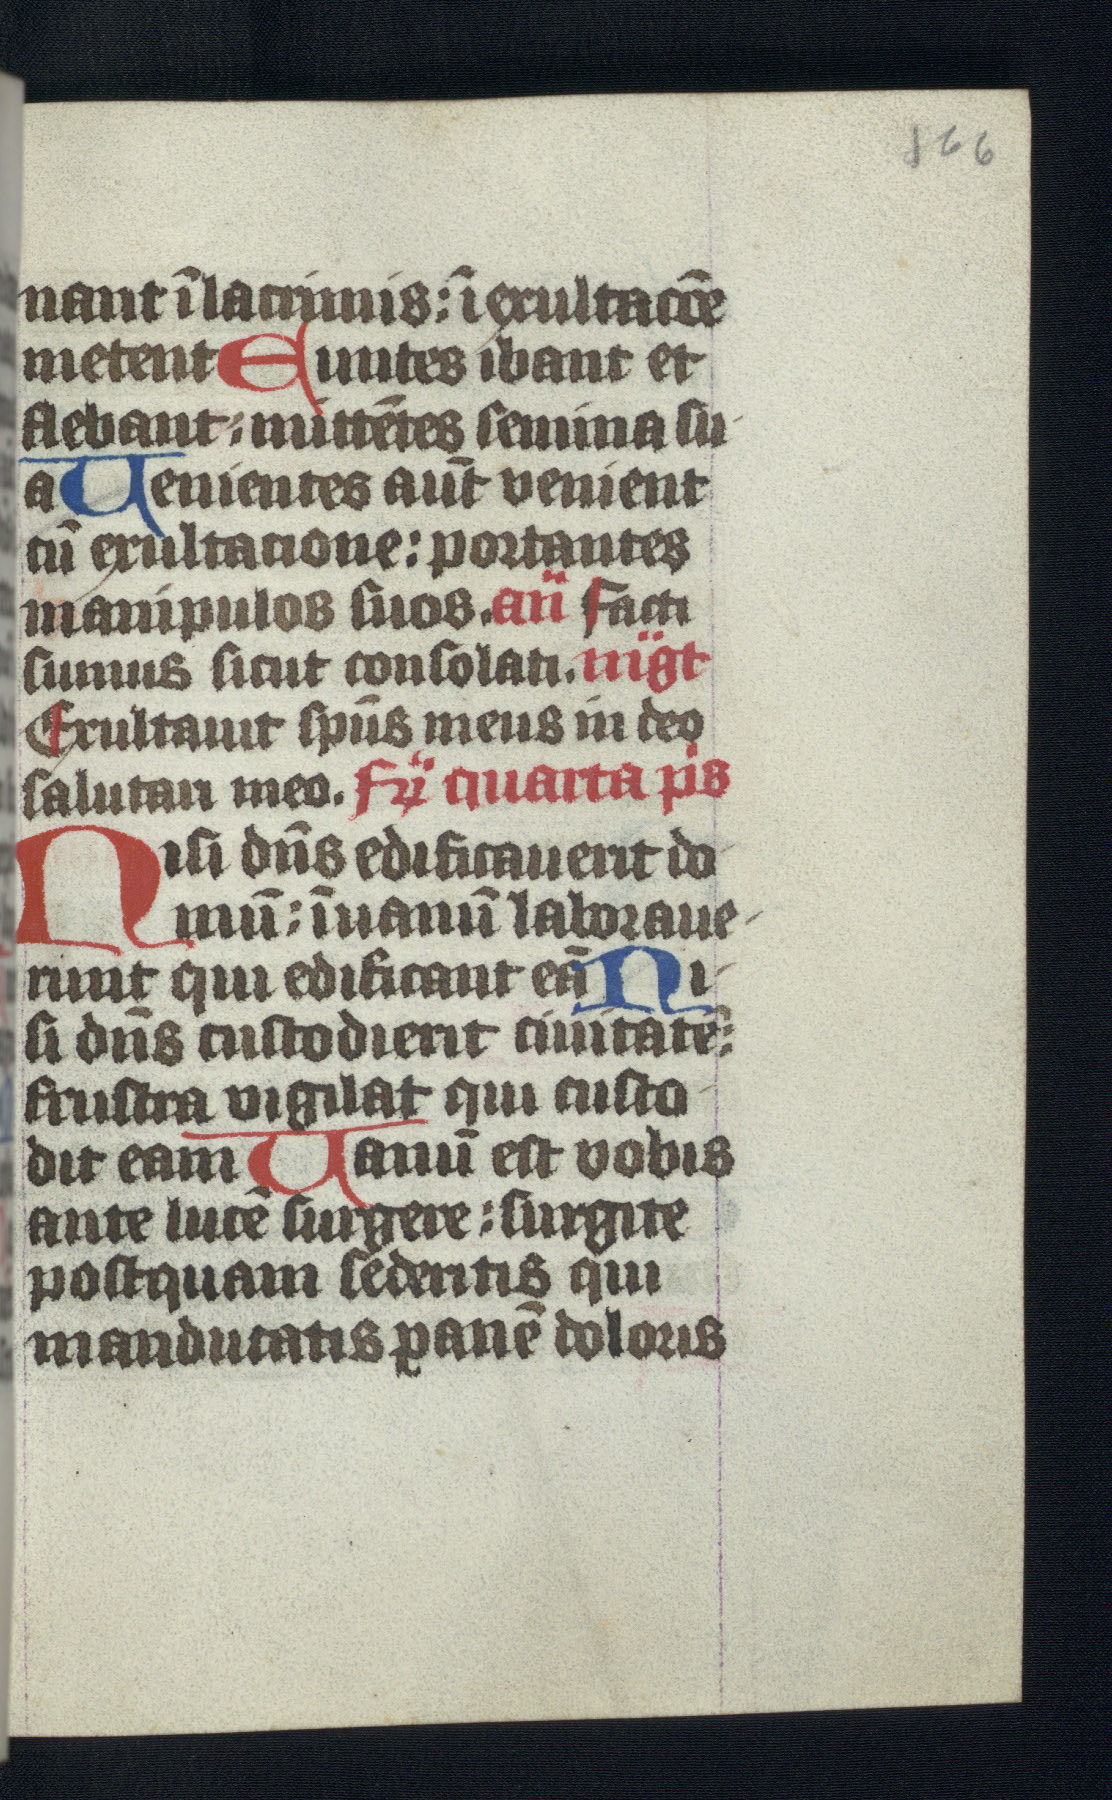 166
nant ī lacrimis: ī exultacōe
metent Euntes ibant et
flebant: mittētes semina su-
a Uenientes aūt venient
cū exultacione: portantes
manipulos suos. an̄ Facti
sumus sicut consolati. mḡt
Exultauit spūs meus in deo
salutari meo. Fr̄ quarta ps̄
Nisi dn̄s edificauerit do-
mū: ī uanū laboraue-
runt qui edificant eā Ni-
si dn̄s custodierit ciuitatē:
frustra vigilat qui custo-
dit eam Uanū est vobis
ante lucē surgere: surgite
postquam sederitis qui
manducatis panē doloris